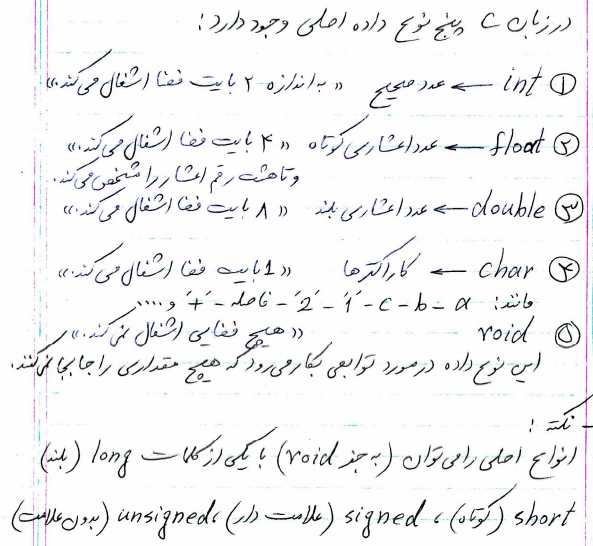 در زبان C پنج نوع داده اصلی وجود دارد:
① int ← عدد صحیح «به اندازه ۲ بایت فضا اشغال می‌کند.»
② float ← عدد اعشاری کوتاه «۴ بایت فضا اشغال می‌کند.»
و تا هشت رقم اعشار را مشخص می‌کند.
③ double ← عدد اعشاری بلند «۸ بایت فضا اشغال می‌کند.»
④ char ← کاراکترها «1 بایت فضا اشغال می‌کند.»
مانند: a - b - c - '1' - '2' - فاصله - '+' و ....
⑤ void «هیچ فضایی اشغال نمی‌کند.»
این نوع داده در مورد توابعی بکار می‌رود که هیچ مقداری را جابجا نمی‌کنند.
- نکته:
انواع اصلی را می‌توان (به جز void) با یکی از کلمات long (بلند)
short (کوتاه)، signed (علامت دار)، unsigned (بدون علامت)